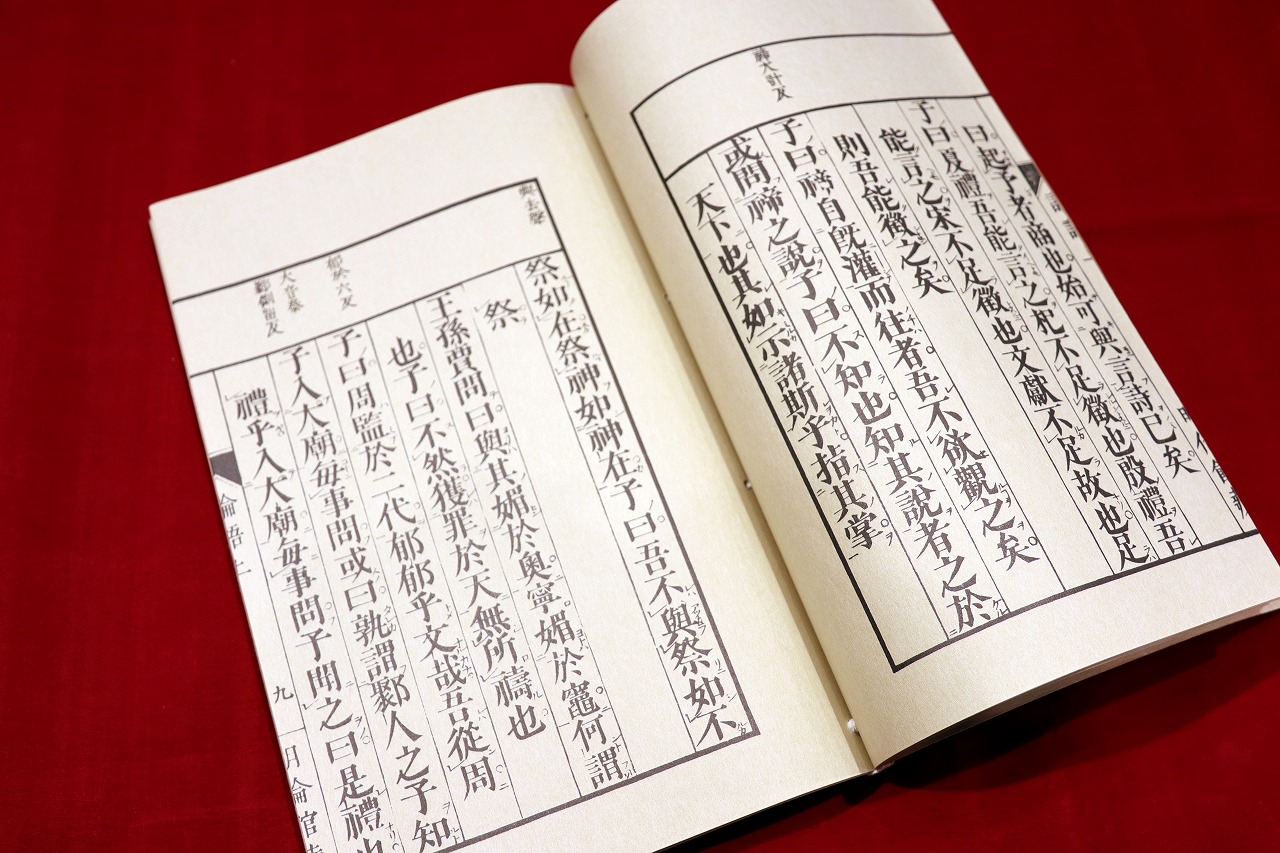 禘大計反
曰起予者商也始可與言詩已矣
子曰夏禮吾能言之杞不足徵也殷禮吾
能言之宋不足徵也文獻不足故也足
則吾能徵之矣
子曰禘自旣灌而往者吾不欲觀之矣
或問禘之說子曰不知也知其說者之於
天下也其如示諸斯乎指其掌
與去聲
郁於六反
大音泰
鄹側留反
祭如在祭神如神在子曰吾不與祭如不
祭
王孫賈問曰與其媚於奧寧媚於竈何謂
也子曰不然獲罪於天無所禱也
子曰周監於二代郁郁乎文哉吾從周
子入大廟每事問或曰孰謂鄹人之子知
禮乎入大廟每事問子聞之曰是禮也
九